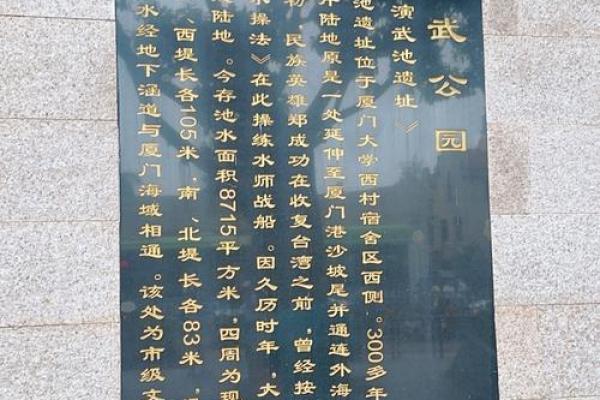 武公园
演武池遗址》
池遗址位于厦门大学西村宿舍区西侧。300多年
陆地原是一处延伸至厦门港沙坡尾并通连外海
民族英雄郑成功在收复台湾之前，曾经按
水操法》在此操练水师战船。因久历时年，大
陆地。今存池水面积8715平方米，四周为现
、西堤长各105米，南、北堤长各83米，
水经地下涵道与厦门海域相通。该处为市级文